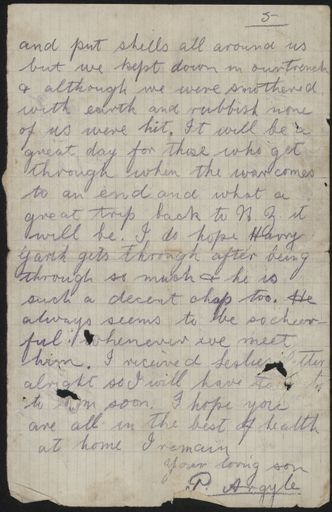 5-
and put shells all around us
but we kept down in our trench
& although we were smothered
with earth and rubbish none
of us were hit. It will be a
great day for those who get
through when the war comes
to an end and what a
great trip back to N Z it
will be. I do hope Harry
Garth gets through after being
through so much & he is
such a decent chap too. He
always seems to be so cheer-
ful whenever we meet
him. I received Leslies letter
alright so I will have to
to him soon. I hope you
are all in the best of health
at home I remain
Your loving son
P. Argyle